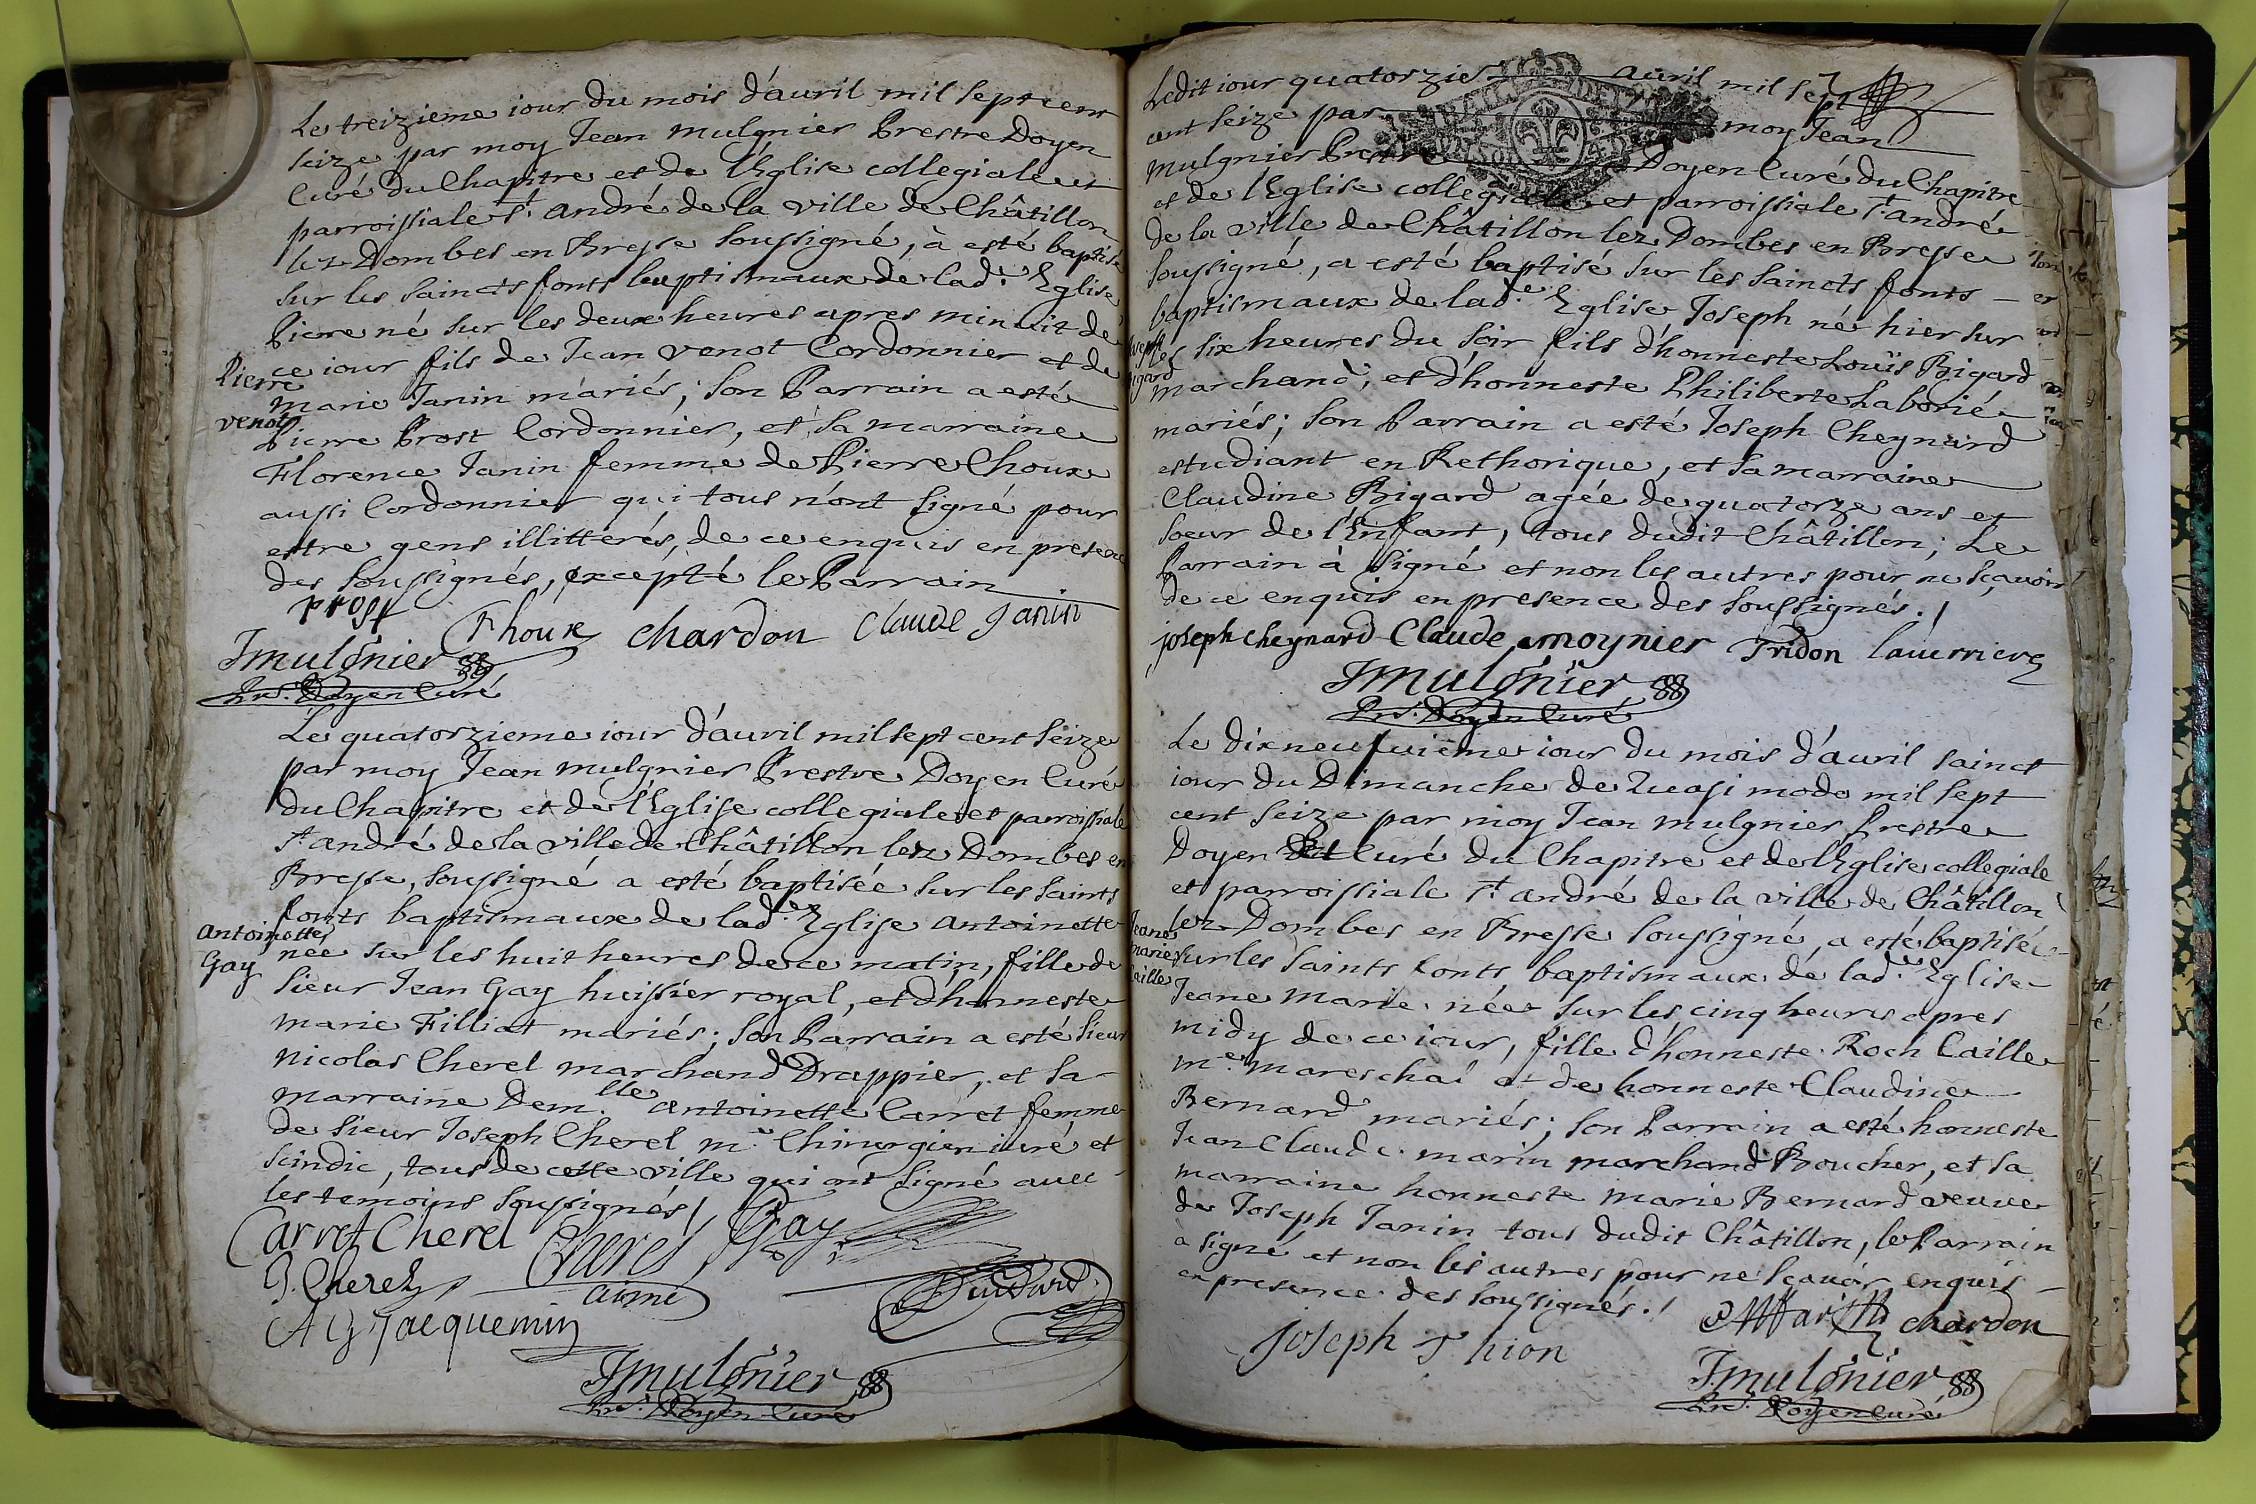 Le treizieme iour du mois d'auril mil sept cent
seize par moy Jean mulgnier Prestre Doyen
Curé du Chapitre et de l'Eglise collegiale et
parroissiale St. andré de la ville de Châtillon
lez Dombes en Bresse soussigné, à esté baptisé
sur les saincts fonts baptismaux de lad.e Eglise
Pierre né sur les deux heures apres minuit de
ce iour fils de Jean venot Cordonnier et de
Pierre
venot
marie Janin mariés; son Parrain a esté
Pierre Prost Cordonnier, et sa marraine
Florence Janin femme de Pierre Choux
aussi Cordonnier qui tous n'ont signé pour
estre gens illitterés, de ce enquis en presence
des soussignés, excepté le Parrain
prost
Choux chardon Claude Janin
Jmulgnier
Pre. Doyen Curé
Le quatorzieme iour d'auril mil sept cent seize
par moy Jean mulgnier Prestre Doyen Curé
du Chapitre et de l'Eglise collegiale et parroissiale
St andré de la ville de Châtillon lez Dombes en
Bresse, soussigné a esté baptisée sur les saints
fonts baptismaux de lad.e Eglise antoinette
antoinette
Gay
née sur les huit heures de ce matin, fille de
sieur Jean Gay huissier royal, et d'honneste
marie Filliat mariés; son Parrain a esté sieur
nicolas Cherel marchand Drappier, et sa
marraine Dem.lle antoinette Carret femme
de sieur Joseph Cherel m.e Chirurgien iuré et
scindic, tous de cette ville qui ont signé auec
les temoins soussignés /
Carret Cherel Cherel Gay
J. Cherel aimé
Jacquemin
Jmulgnier
Pre. Doyen Curé
Ledit iour quatorzie auril mil sept
cent seize par moy Jean
mulgnier Prestre Doyen Curé du Chapitre
et de l'Eglise collegiale et parroissiale St. andré
de la ville de Châtillon lez Dombes en Bresse
soussigné, a esté baptisé sur les saincts fonts
baptismaux de lad.e Eglise Joseph né hier sur
Joseph
Bigard
les six heures du soir fils d'honneste Louïs Bigard
marchand, et d'honneste Philiberte Laborié
mariés; son Parrain a esté Joseph Cheynard
estudiant en Rethorique, et sa marraine
Claudine Bigard agée de quatorze ans et
soeur de l'Enfant, tous dudit Châtillon; Le
Parrain à signé et non les autres pour ne sçauoir
de ce enquis en presence des soussignés. /
joseph cheynard Claude moynier Tridon laurriere
Jmulgnier
Pre. Doyen Curé
Le dixneufuième iour du mois d'auril sainct
iour du Dimanche de Quasi modo mil sept
cent seize par moy Jean mulgnier Prestre
Doyen Curé du Chapitre et de l'Eglise collegiale
et parroissiale St andré de la ville de Châtillon
lez Dombes en Bresse soussigné, a esté baptisée
Jeane
marie
Caille
sur les saints fonts baptismaux de lad.e Eglise
Jeane Marie née sur les cinq heures apres
midy de ce iour, fille d'honneste Roch Caille
m.e mareschal et de honneste Claudine
Bernard mariés; son Parrain a esté honneste
Jean Claude marin marchand Boucher, et sa
marraine honneste marie Bernard veuve
de Joseph Janin tous dudit Châtillon, le Parrain
a signé et non les autres pour ne sçauoir enquis
en presence des soussignés. /
Marin chardon
Joseph Thion
Jmulgnier
Pre. Doyen Curé